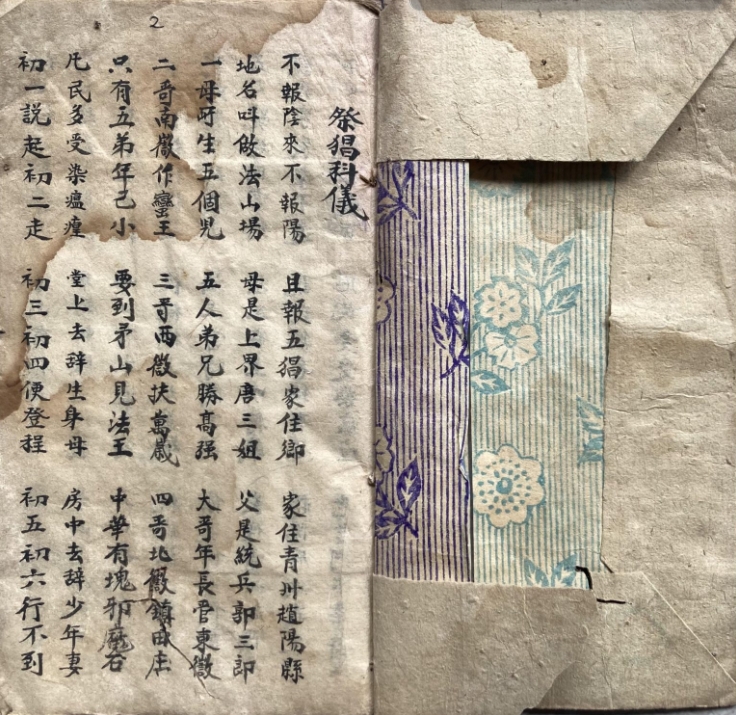 2
祭猖科儀
不報陰來不報陽 且報五猖家住鄉 家住青州趙陽縣
地名叫做法山場 母是上界唐三姐 父是統兵郭三郎
一母所生五個児 五人弟兄勝髙强 大哥年長管東嶽
二哥南嶽作蠻王 三哥西嶽扶萬歲 四哥北嶽鎮
只有五弟年己小 要到矛山見法王 中華有塊邪魔石
凡民多受染瘟瘽 堂上去辞生身母 房中去辞少年妻
初一説起初二走 初三初四便登程 初五初六行不到